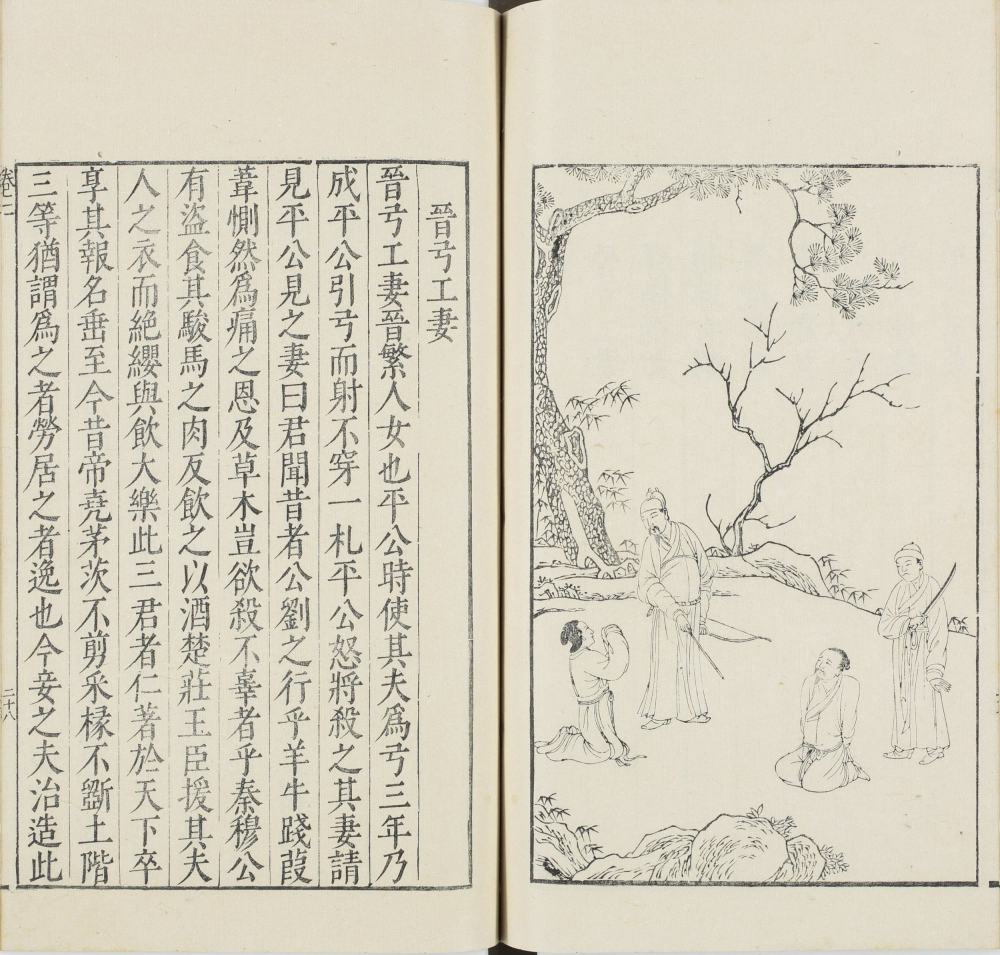 晉弓工妻
晉弓工妻晉繁人女也平公時使其夫爲弓三年乃
成平公引弓而射不穿一札平公怒將殺之其妻請
見平公見之妻曰君聞昔者公劉之行乎羊牛踐葭
葦惻然爲痛之恩及草木豈欲殺不辜者乎秦穆公
有盜食其駿馬之肉反飲之以酒楚莊王臣援其夫
人之衣而絶纓與飲大樂此三君者仁著於天下卒
享其報名垂至今昔帝堯茅茨不剪采椽不斵土階
三等猶謂爲之者勞居之者逸也今妾之夫治造此
卷二
二十八